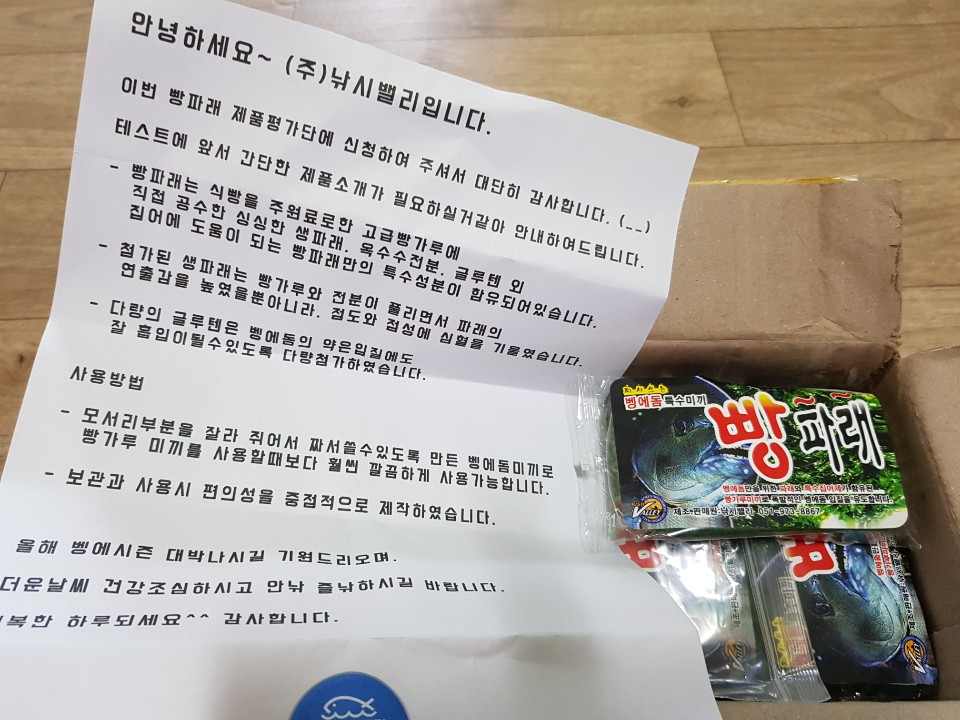 안녕하세요~ (주)낚시밸리입니다.
이번 빵파래 제품평가단에 신청하여 주셔서 대단히 감사합니다. (__)
테스트에 앞서 간단한 제품소개가 필요하실거같아 안내하여드립니다.
- 빵파래는 식빵을 주원료로한 고급빵가루에
직접 공수한 싱싱한 생파래, 옥수수전분, 글루텐 외
집어에 도움이 되는 빵파래만의 특수성분이 함유되어있습니다.
- 첨가된 생파래는 빵가루와 전분이 풀리면서 파래의
연출감을 높였을뿐아니라, 점도와 점성에 심혈을 기울였습니다.
- 다량의 글루텐은 벵에돔의 약은입질에도
잘 흡입이될수있도록 다량첨가하였습니다.
사용방법
- 모서리부분을 잘라 쥐어서 짜서쓸수있도록 만든 벵에돔미끼로
빵가루 미끼를 사용할때보다 훨씬 깔끔하게 사용가능합니다.
- 보관과 사용시 편의성을 중점적으로 제작하였습니다.
올해 벵에시즌 대박나시길 기원드리오며,
더운날씨 건강조심하시고 안낚 즐낚하시길 바랍니다.
복한 하루되세요^^ 감사합니다.
짜서쓰는
벵에돔 특수미끼
빵파래
벵에돔만을 위한 파래와 특수집어제가 함유된
빵가루미끼로 폭발적인 벵에돔 입질을 유도합니다
제조+판매원:낚시밸리 051-973-8867
VALLEY